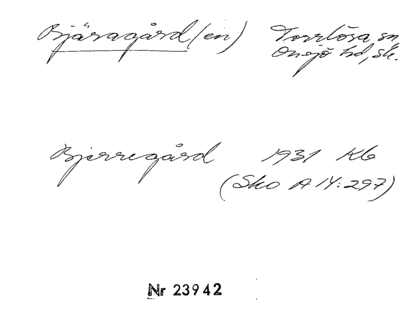 Bjäragård (en) Torrlösa sn
Onsjö hd, sk.
Bjerregård 1931 Kb
(Sko A IV:297)
Nr 23942